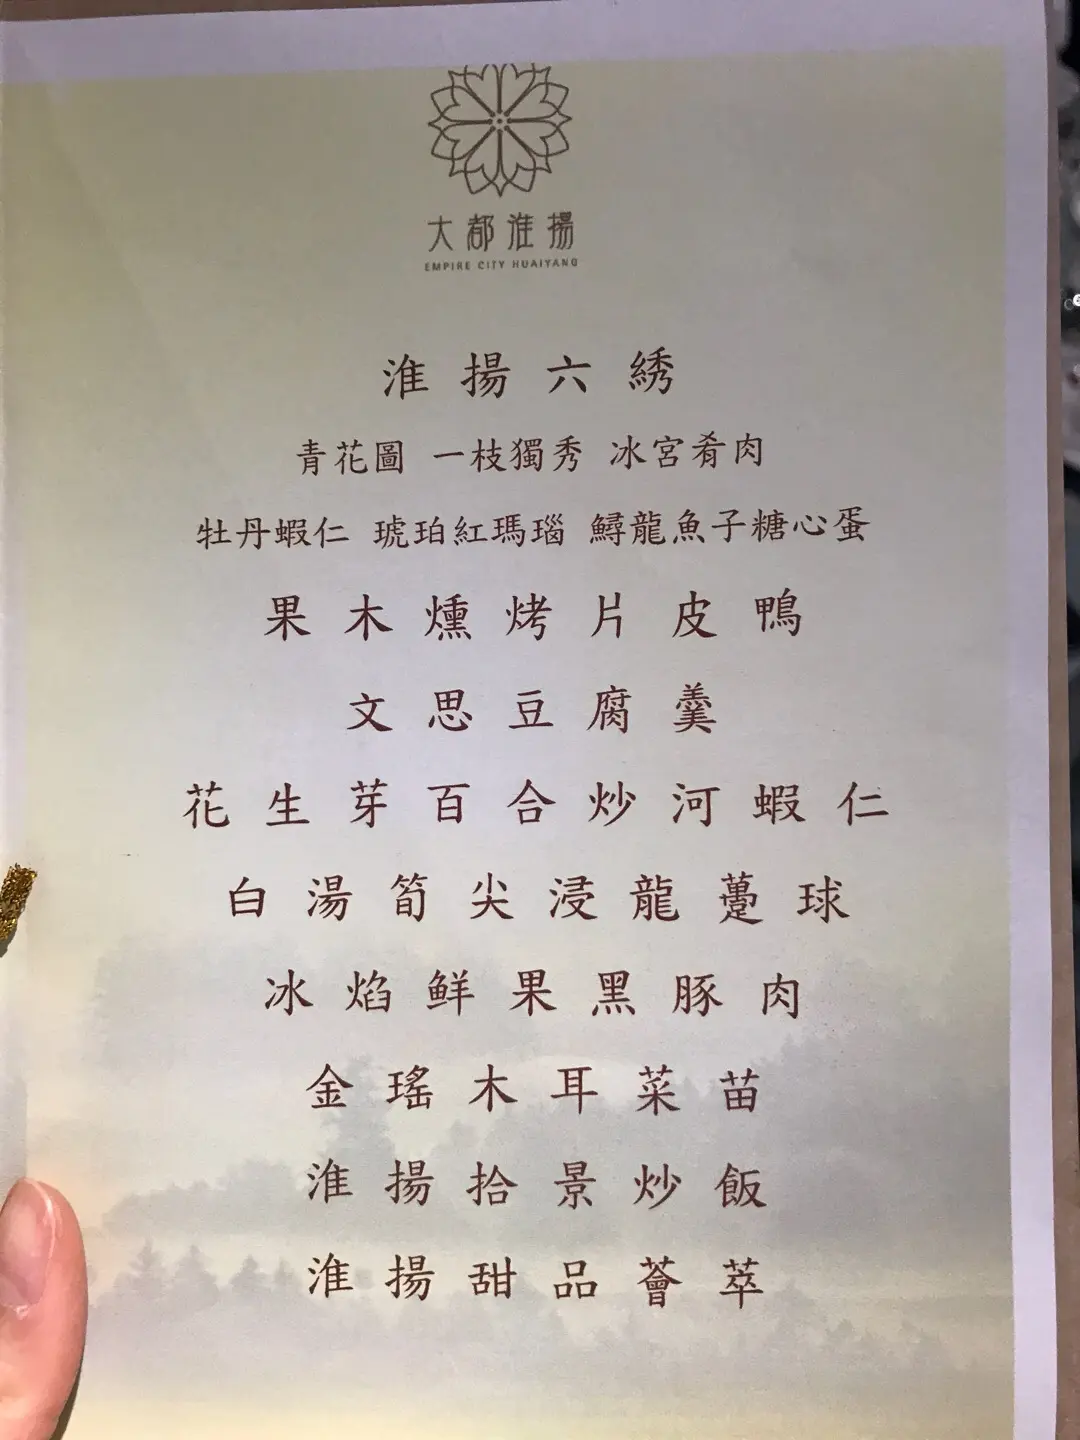 大都淮揚
EMPIRE CITY HUAIYANG
淮揚六綉
青花圖 一枝獨秀 冰宮肴肉
牡丹蝦仁 琥珀紅瑪瑙 鱘龍魚子糖心蛋
果木燻烤片皮鴨
文思豆腐羹
花生芽百合炒河蝦仁
白湯筍尖浸龍躉球
冰焰鮮果黑豚肉
金瑤木耳菜苗
淮揚拾景炒飯
淮揚甜品薈萃